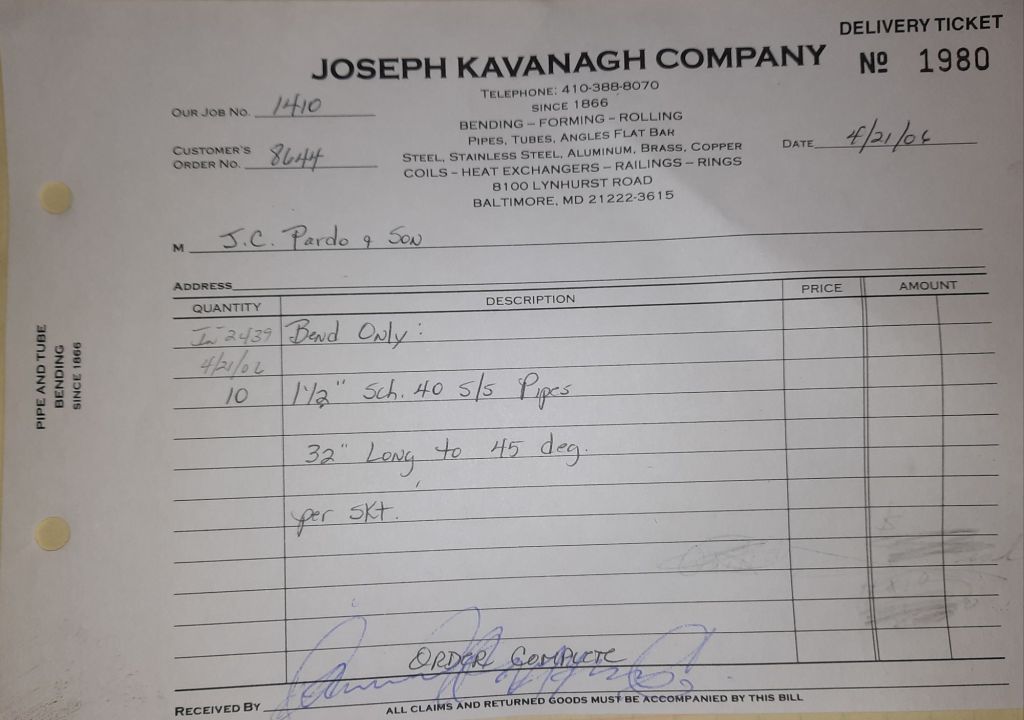 DELIVERY TICKET
JOSEPH KAVANAGH COMPANY
Nº 1980
TELEPHONE: 410-388-8070
SINCE 1866
OUR JOB NO. 1410
BENDING – FORMING – ROLLING
PIPES, TUBES, ANGLES FLAT BAR
CUSTOMER'S
ORDER NO. 8644
DATE 4/21/06
STEEL, STAINLESS STEEL, ALUMINUM, BRASS, COPPER
COILS – HEAT EXCHANGERS – RAILINGS – RINGS
8100 LYNHURST ROAD
BALTIMORE, MD 21222-3615
M J.C. Pardo & Son
ADDRESS
QUANTITY DESCRIPTION PRICE AMOUNT
In 2439 Bend Only:
4/21/06
10 1½" Sch. 40 S/S Pipes
32" Long to 45 deg.
per SKt.
ORDER COMPLETE
RECEIVED BY
ALL CLAIMS AND RETURNED GOODS MUST BE ACCOMPANIED BY THIS BILL
PIPE AND TUBE
BENDING
SINCE 1866